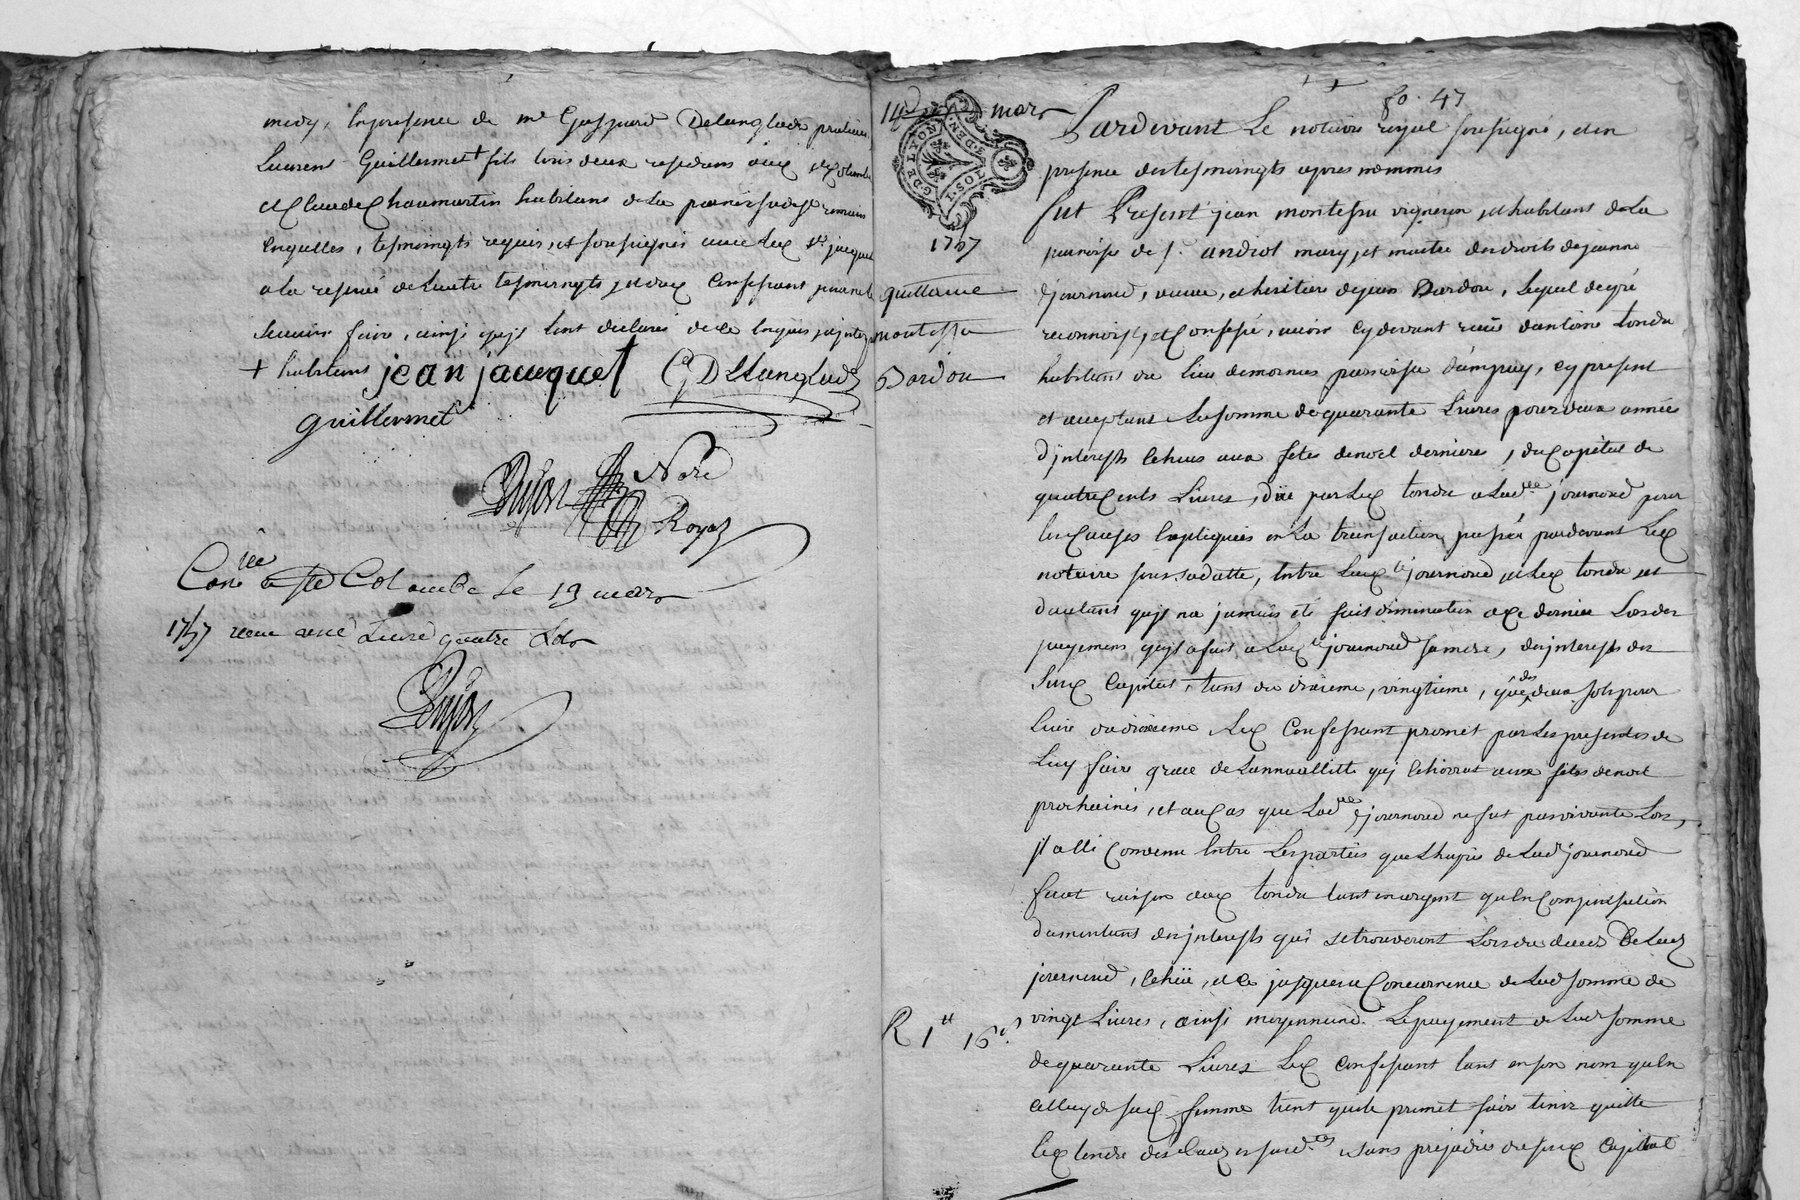 midy, en presence de me Gaspard Delanglade praticien
Laurent Guillermet + fils tous deux residans aux Ste Colombe
et Claude Chaumartin habitans de la paroisse de St romain
engalles, tesmoingts requis, et soussignés avec led. sr jacquet
a la reserve de l'autre tesmoingts, et dud. confessant pour ne le
scavoir faire, ainsi qu'ils l'ont declaré de ce enquis
+ habitans jean jacquet G Delanglade
guillermet
Dujon Nore
Royal
Conée a Ste Colombe le 19 mars
1757 receu une Livre quatre sols
Dujon
14 mars
G. DE LYON
1757
quittance
montessu
Dardou
R 1tt 16s.
fo. 47
Pardevant Le notaire royal soussigné, et en
presence des tesmoingts apres nommés
fut Present jean montessu vigneron, et habitant de la
paroisse de St. andiol mary, et maitre des droits de jeanne
journoud, veuve, et heritiere de jean Dardou, Lequel de gré
reconnoist, et confesse, avoir cy devant receu d'antoine tondu
habitant du lieu de mornas paroisse d'ampuy, cy present
et acceptant La somme de quarante Livres pour deux années
d'interests echues aux fetes de noel dernieres, du capital de
quatre cents Livres, düe par led. tondu a Lad.ee journoud pour
les causes expliquées en La transaction passée pardevant Led.
notaire soussadatte, entre Lad. journoud, et led. tondu, et
d'autant qu'il n'a jamais été fait diminution a ce dernier Lors des
payemens qu'il a fait a Lad.te journoud sa mere, des interests du
susd. capital, tant du dixieme, vingtieme, que des deux sols pour
Livre du dixieme Led. Confessant promet par Les presentes de
Luy faire grace de L'annuallité qui echierrat aux fetes de noel
prochaines, et au cas que Lad.ee journoud ne fut pas vivante Lors,
il a été convenu entre Les parties que L'hoirie de Lad. journoud
ferat raison aud. tondu tant en argent qu'en compensation
d'amontant des interests qui se trouveront Lors du deced de Lad.
journoud, echüe, et ce jusques a concurrence de Lad. somme de
vingt Livres, ainsi moyennand. Le payement de Lad. somme
de quarante Livres Led. confessant tant en son nom qu'en
celluy de sad. femme tient quitte promet faire tenir quitte
led. tondu des causes susd.tes sans prejudice du susd. capital